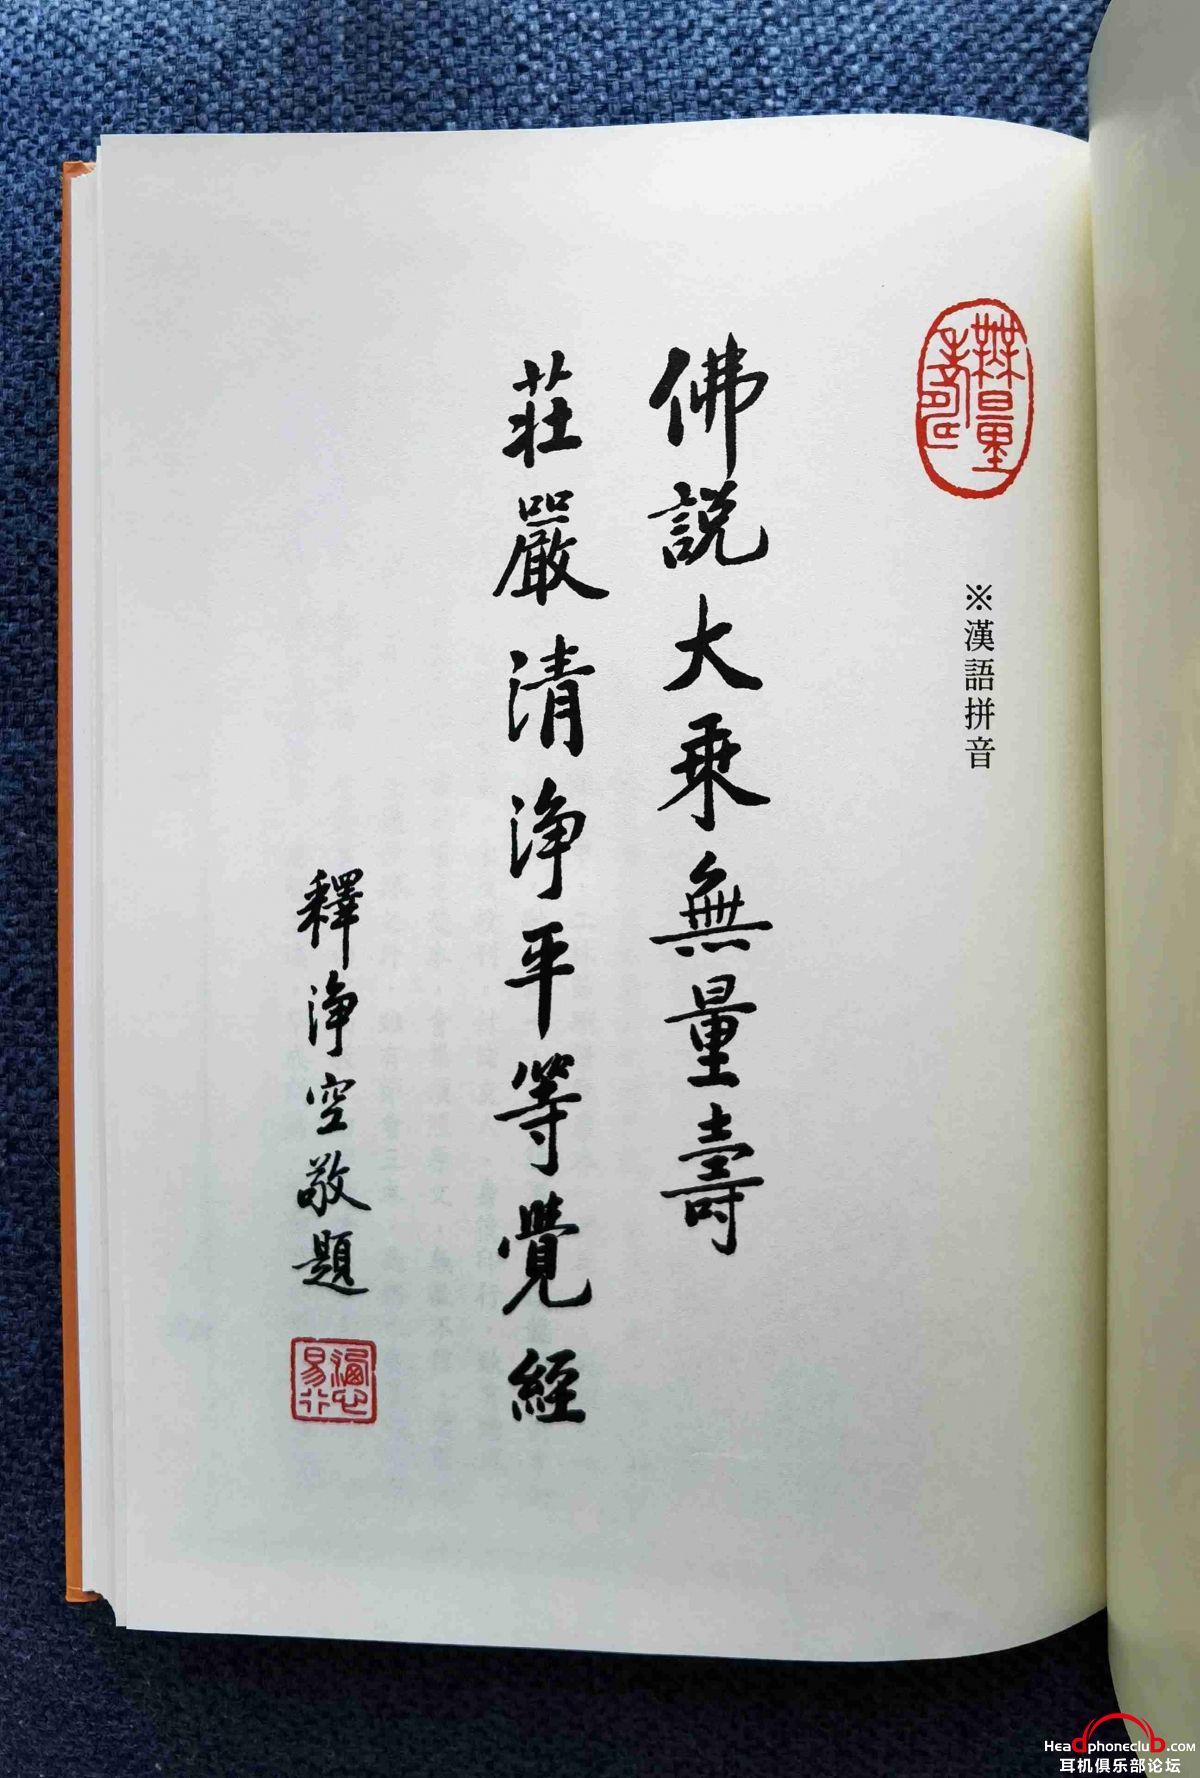 無量壽
※漢語拼音
佛説大乘無量壽
莊嚴清淨平等覺經
釋淨空敬題
Headphoneclub.com
耳机俱乐部论坛